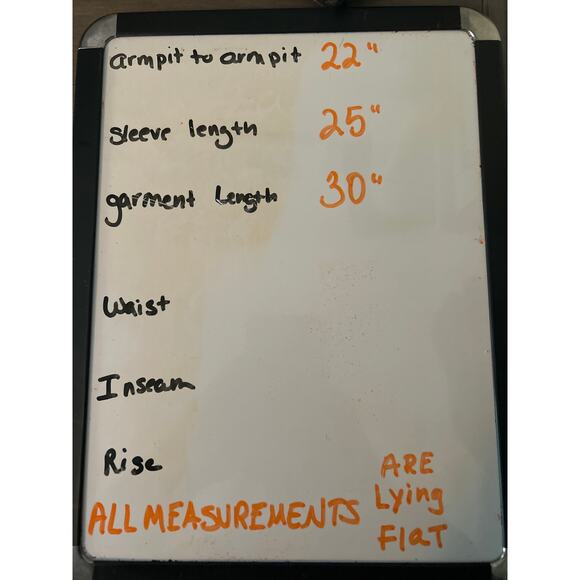 armpit to armpit 22"
sleeve length 25"
garment Length 30"
Waist
Inseam
Rise
ALL MEASUREMENTS ARE
Lying
FlaT